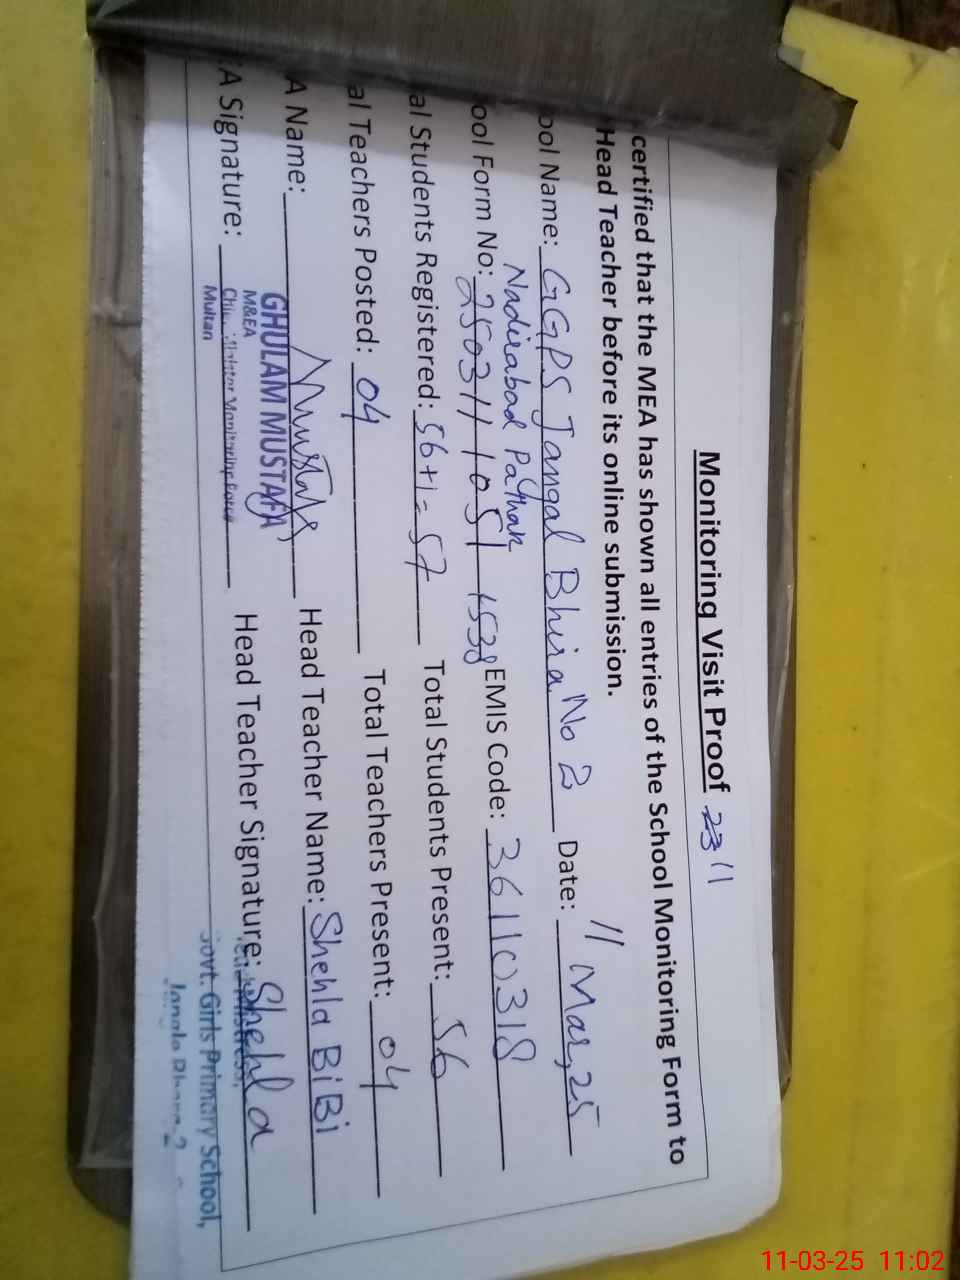 Monitoring Visit Proof 23 11
certified that the MEA has shown all entries of the School Monitoring Form to
Head Teacher before its online submission.
ool Name: GGPS Jangal Bhira No 2 Date: 11 Mar, 25
Nadirabad Pathak
ool Form No: 250311 1051 EMIS Code: 36110318
al Students Registered: 56+1=57 Total Students Present: 56
al Teachers Posted: 04 Total Teachers Present: 04
A Name: Mustafa Head Teacher Name: Shehla BiBi
GHULAM MUSTAFA
M&EA
A Signature: Head Teacher Signature: Shehla
Monitoring Force
Multan
Govt. Girls Primary School,
11-03-25 11:02